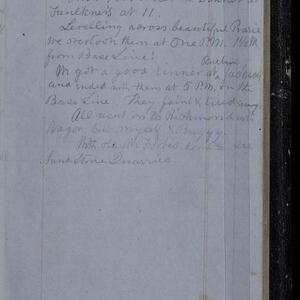 Faulkner's at 11.
Leveling across beautiful Prairie
we overtook them at One P.M. 1½ M
from Base Line!
We got a good dinner at
and ended with them at 5 P.M. on the
Base Line. They faint & tired
All went on to Richmond with
Wagon but myself & Buggy.
With old Mr Forbes down to see
Sand Stone Quarries